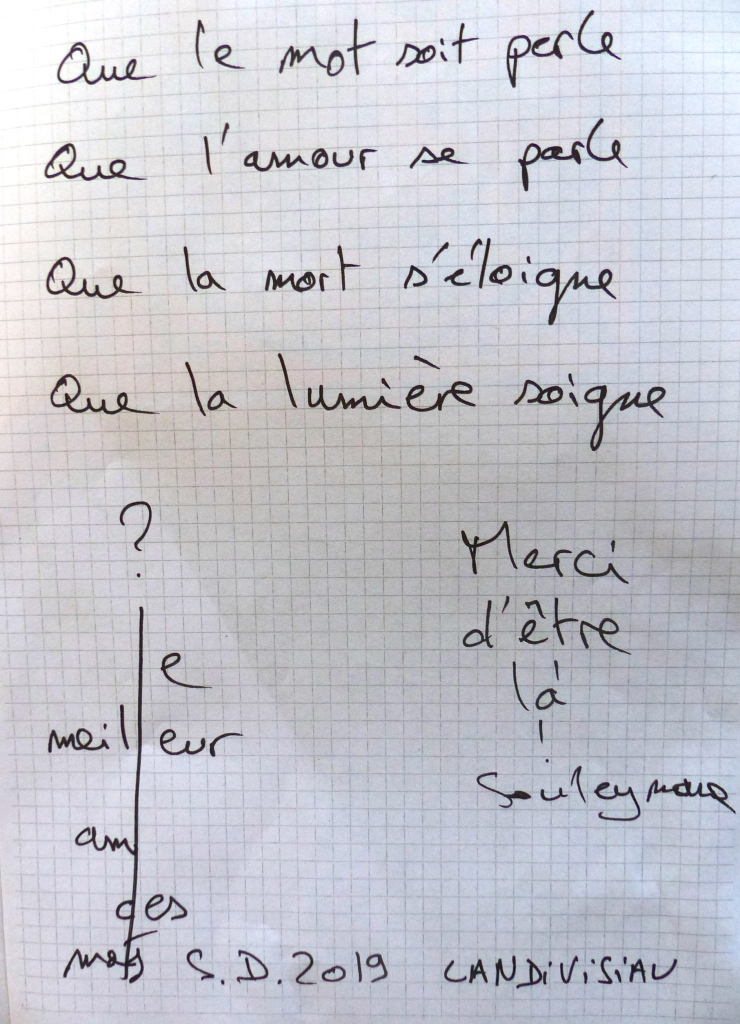 Que le mot soit perle
Que l'amour se parle
Que la mort s'éloigne
Que la lumière soigne
?
le
meilleur
ami
des
mots
Merci
d'être
là
Souleymane
S.D. 2019 LANDIVISIAU